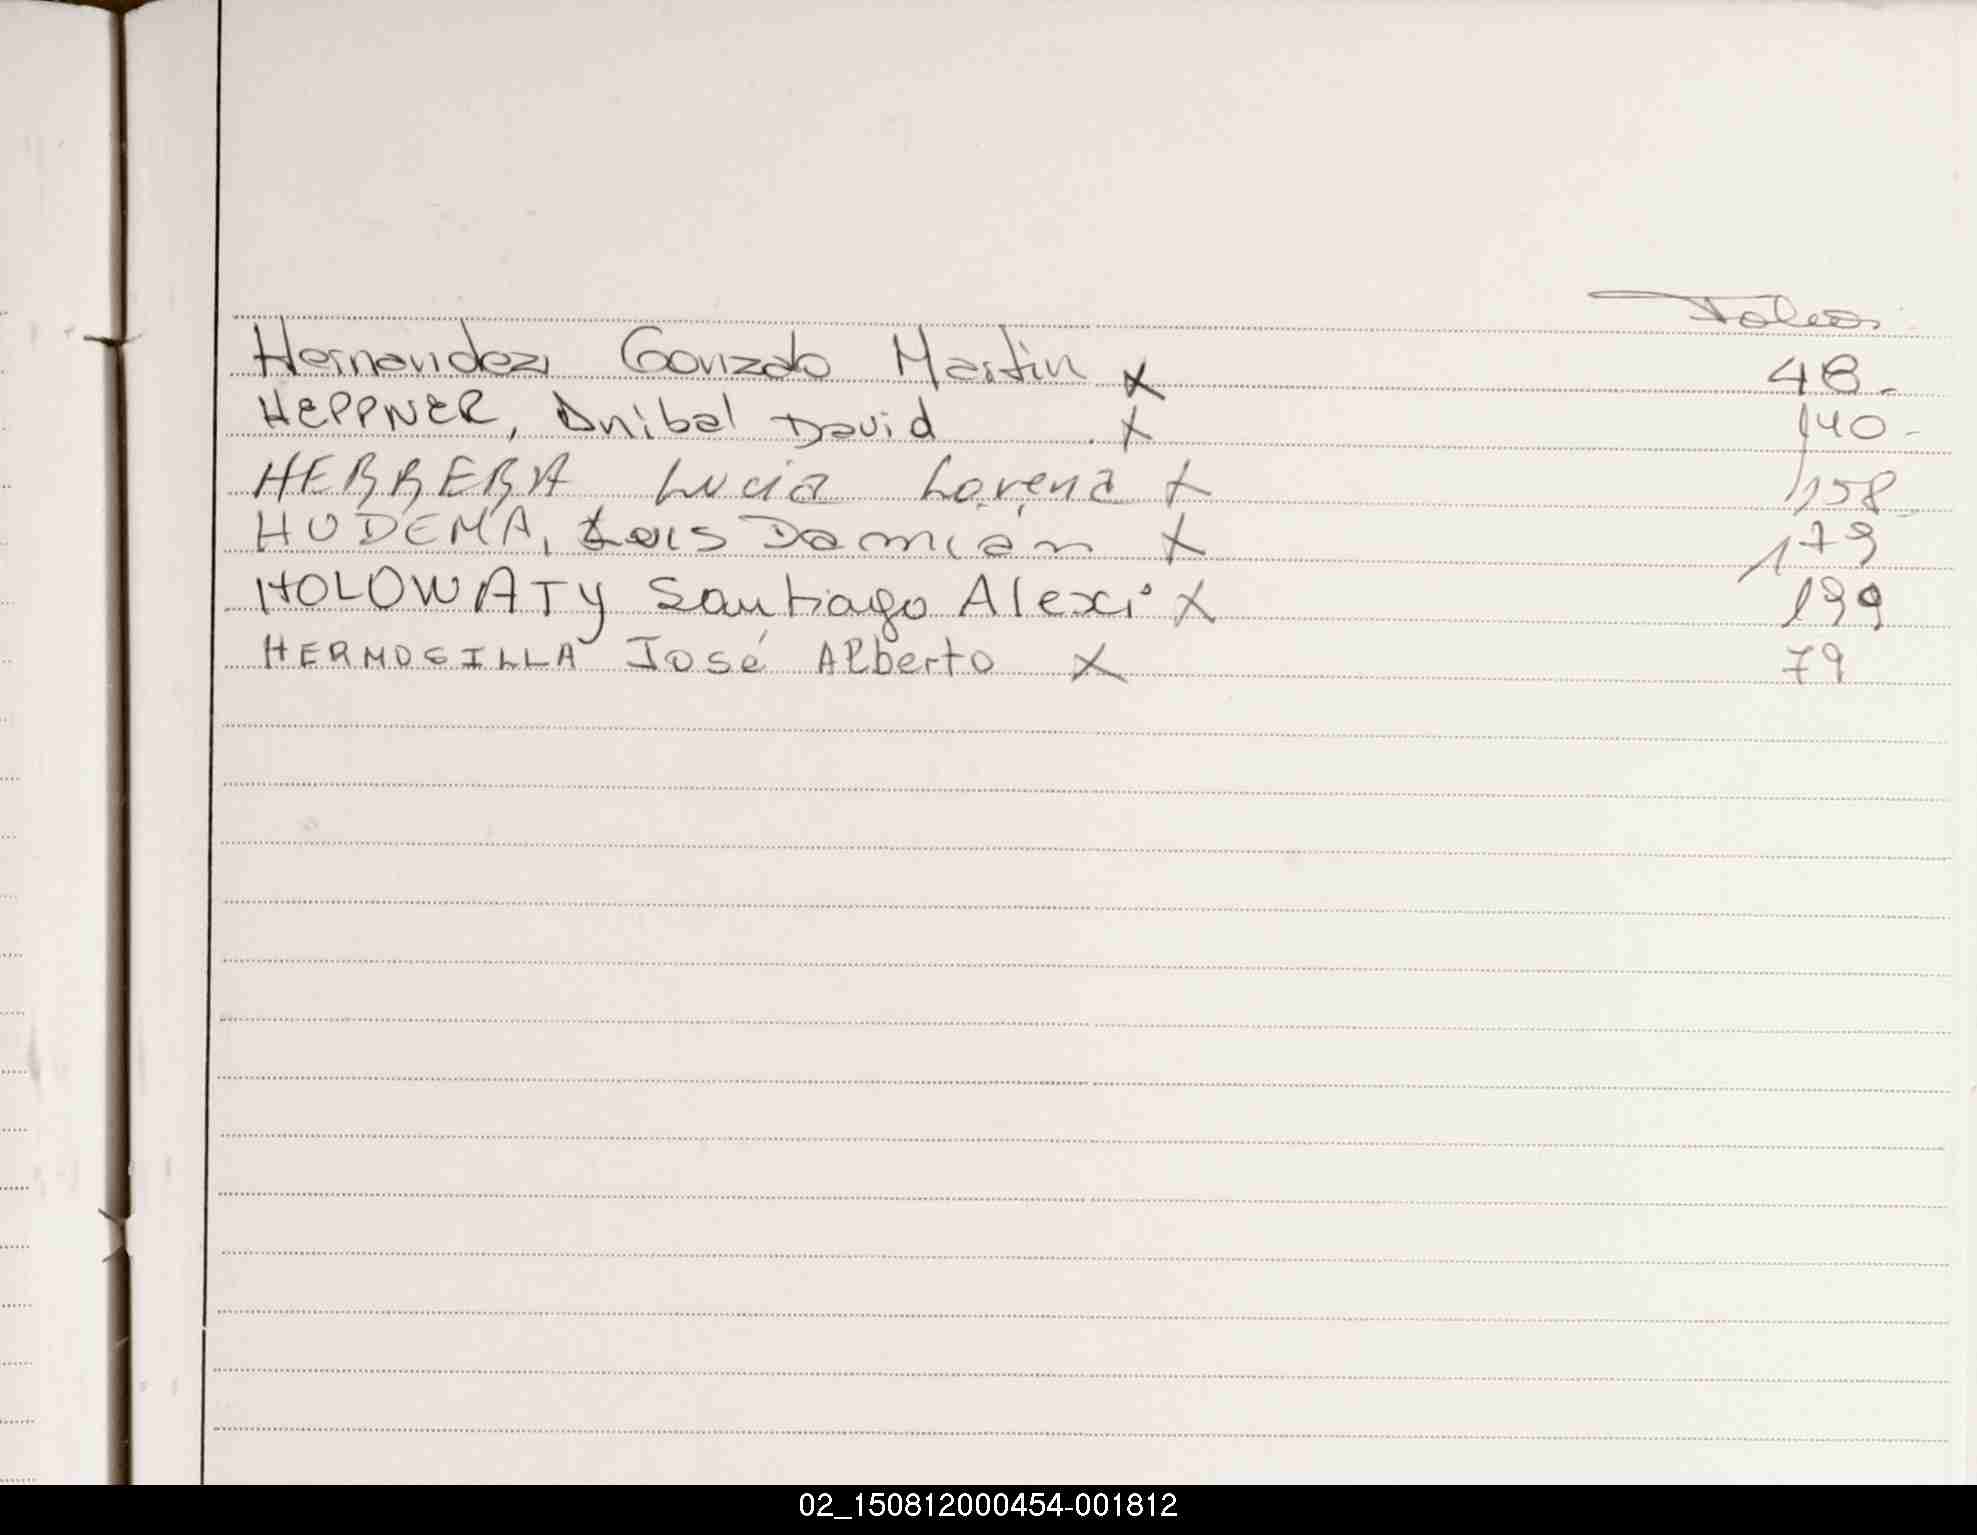 Folios
Hernandez, Gonzalo Martin X 48-
HEPPNER, Anibal David X 140-
HERRERA Lucia Lorena X 158-
HUDEMA, Luis Damián X 179
HOLOWATY Santiago Alexi X 199
HERMOSILLA José Alberto X 79
02_150812000454-001812